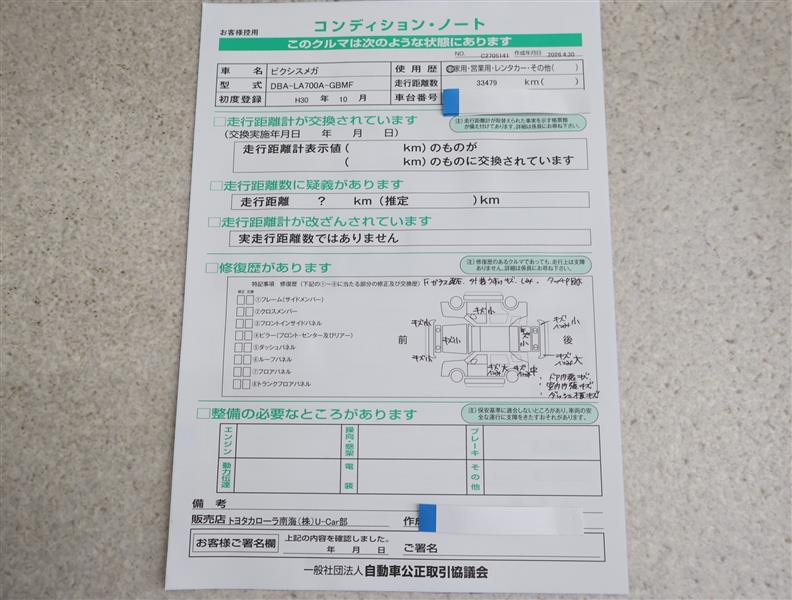 お客様控用
コンディション・ノート
このクルマは次のような状態にあります
NO. C2705141 作成年月日 2026.4.20
車名 ピクシスメガ 使用歴 自家用・営業用・レンタカー・その他( )
型式 DBA-LA700A-GBMF 走行距離数 33479 km( )
初度登録 H30 年 10 月 車台番号
□走行距離計が交換されています
(交換実施年月日 年 月 日)
(注)走行距離計が取替えられた事実を示す帳票類が備え付けてあります。詳細は係員にお尋ね下さい。
走行距離計表示値( km)のものが
( km)のものに交換されています
□走行距離数に疑義があります
走行距離 ? km(推定 )km
□走行距離計が改ざんされています
実走行距離数ではありません
□修復歴があります
(注)修復歴のあるクルマであっても、走行上は支障ありません。詳細は係員にお尋ね下さい。
特記事項 修復歴(下記の①〜⑧に当たる部分の修正及び交換歴)
修正 交換
①フレーム(サイドメンバー)
②クロスメンバー
③フロントインサイドパネル
④ピラー(フロント・センター及びリアー)
⑤ダッシュパネル
⑥ルーフパネル
⑦フロアパネル
⑧トランクフロアパネル
前
後
キズ小
キズ小
キズ小
キズ小
キズ小
キズ
へこみ 小
キズ
へこみ 大
キズ 大
へこみ
キズ 中
へこみ
・ドア内張キズ
・室内内張キズ
□整備の必要なところがあります
(注)保安基準に適合しないところがあり、車両の安全な運行に支障をきたすおそれがあります。
エンジン 操向・懸架 ブレーキ
動力伝達 電装 その他
備考
販売店 トヨタカローラ南海(株)U-Car部 作成
お客様ご署名欄 上記の内容を確認しました。
年 月 日 ご署名
一般社団法人 自動車公正取引協議会